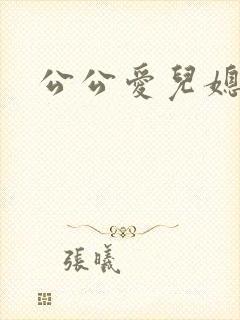 公公愛兒媳
張曦